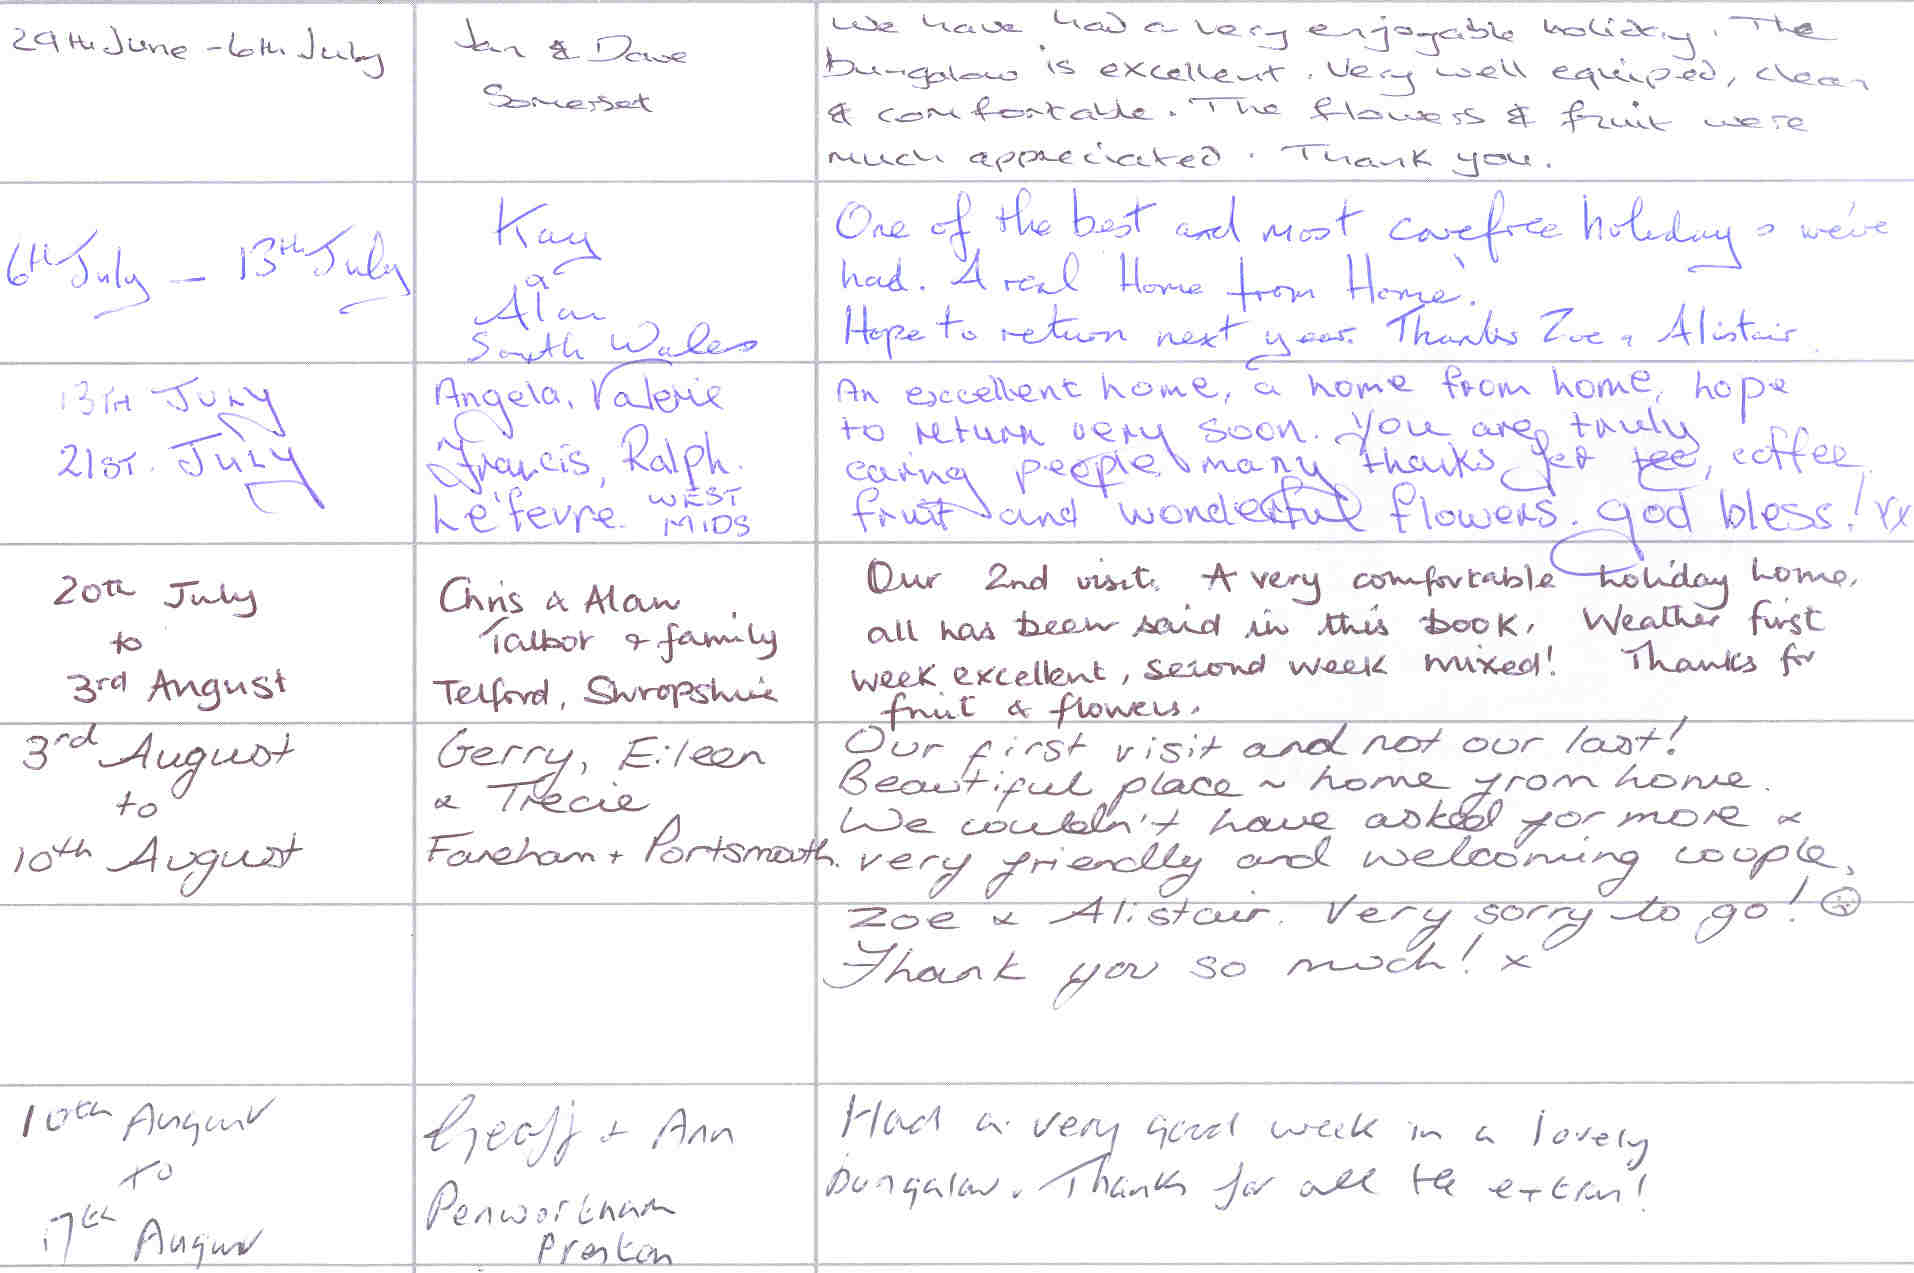 29th June - 6th July
Jan & Dave
Somerset
We have had a very enjoyable holiday. The
bungalow is excellent. Very well equiped, clean
& comfortable. The flowers & fruit were
much appreciated. Thank you.
6th July - 13th July
Kay
&
Alan
South Wales
One of the best and most carefree holidays we've
had. A real 'Home from Home'.
Hope to return next year. Thanks Zoe & Alistair.
13TH JULY
21ST. JULY
Angela, Valerie
Francis, Ralph.
Le'fevre. WEST
MIDS
An excellent home, a home from home, hope
to return very soon. You are truly
caring people many thanks for tee, coffee
fruit and wonderful flowers. god bless! xx
20th July
to
3rd August
Chris & Alan
Talbot & family
Telford, Shropshire
Our 2nd visit. A very comfortable holiday home,
all has been said in this book. Weather first
week excellent, second week mixed! Thanks for
fruit & flowers.
3rd August
to
10th August
Gerry, Eileen
& Trecie
Fareham + Portsmouth.
Our first visit and not our last!
Beautiful place ~ home from home.
We couldn't have asked for more &
very friendly and welcoming couple,
Zoe & Alistair. Very sorry to go! ☹
Thank you so much! x
10th August
To
17th August
Geoff + Ann
Penwortham
Preston
Had a very good week in a lovely
bungalow. Thanks for all the extras!